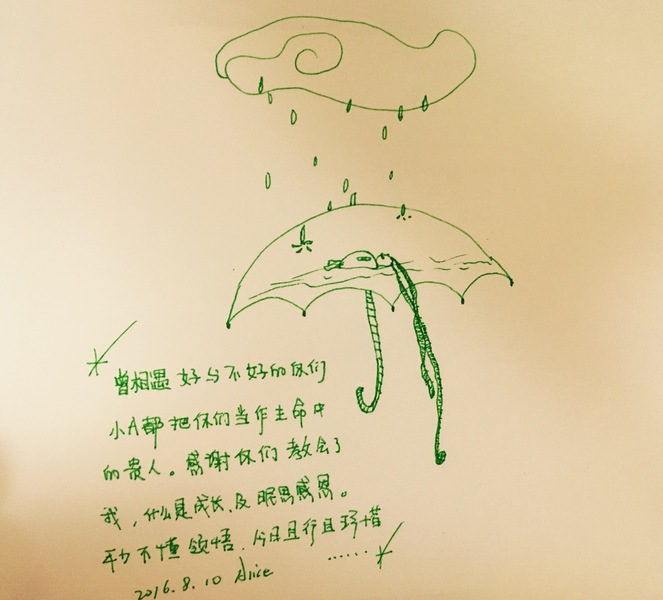 曾相遇 好与不好的你们
小A都把你们当作生命中
的贵人。感谢你们教会了
我，什么是成长，及 思感恩。
不懂领悟，今日且行且珍惜
……
2016.8.10 Alice